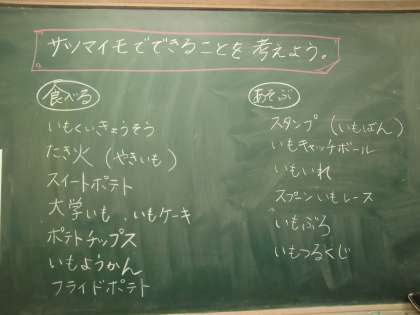 サツマイモでできることを考えよう。
食べる
いもくいきょうそう
たき火(やきいも)
スイートポテト
大学いも、いもケーキ
ポテトチップス
いもようかん
フライドポテト
あそぶ
スタンプ(いもばん)
いもキャッチボール
いもいれ
スプーンいもレース
いもぶろ
いもつるくじ